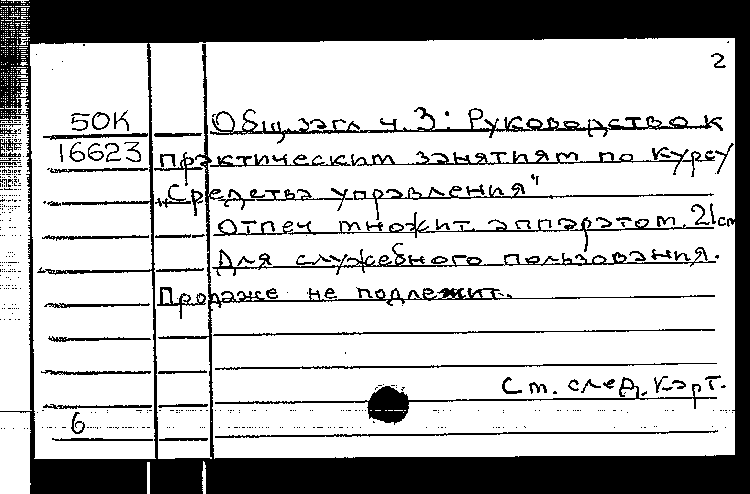 2
50К Общ. загл ч.3: Руководство к
16623 практическим занятиям по курсу
„Средства управления".
Отпеч множит. аппаратом. 21см
Для служебного пользования.
Продаже не подлежит.
См. след. карт.
6